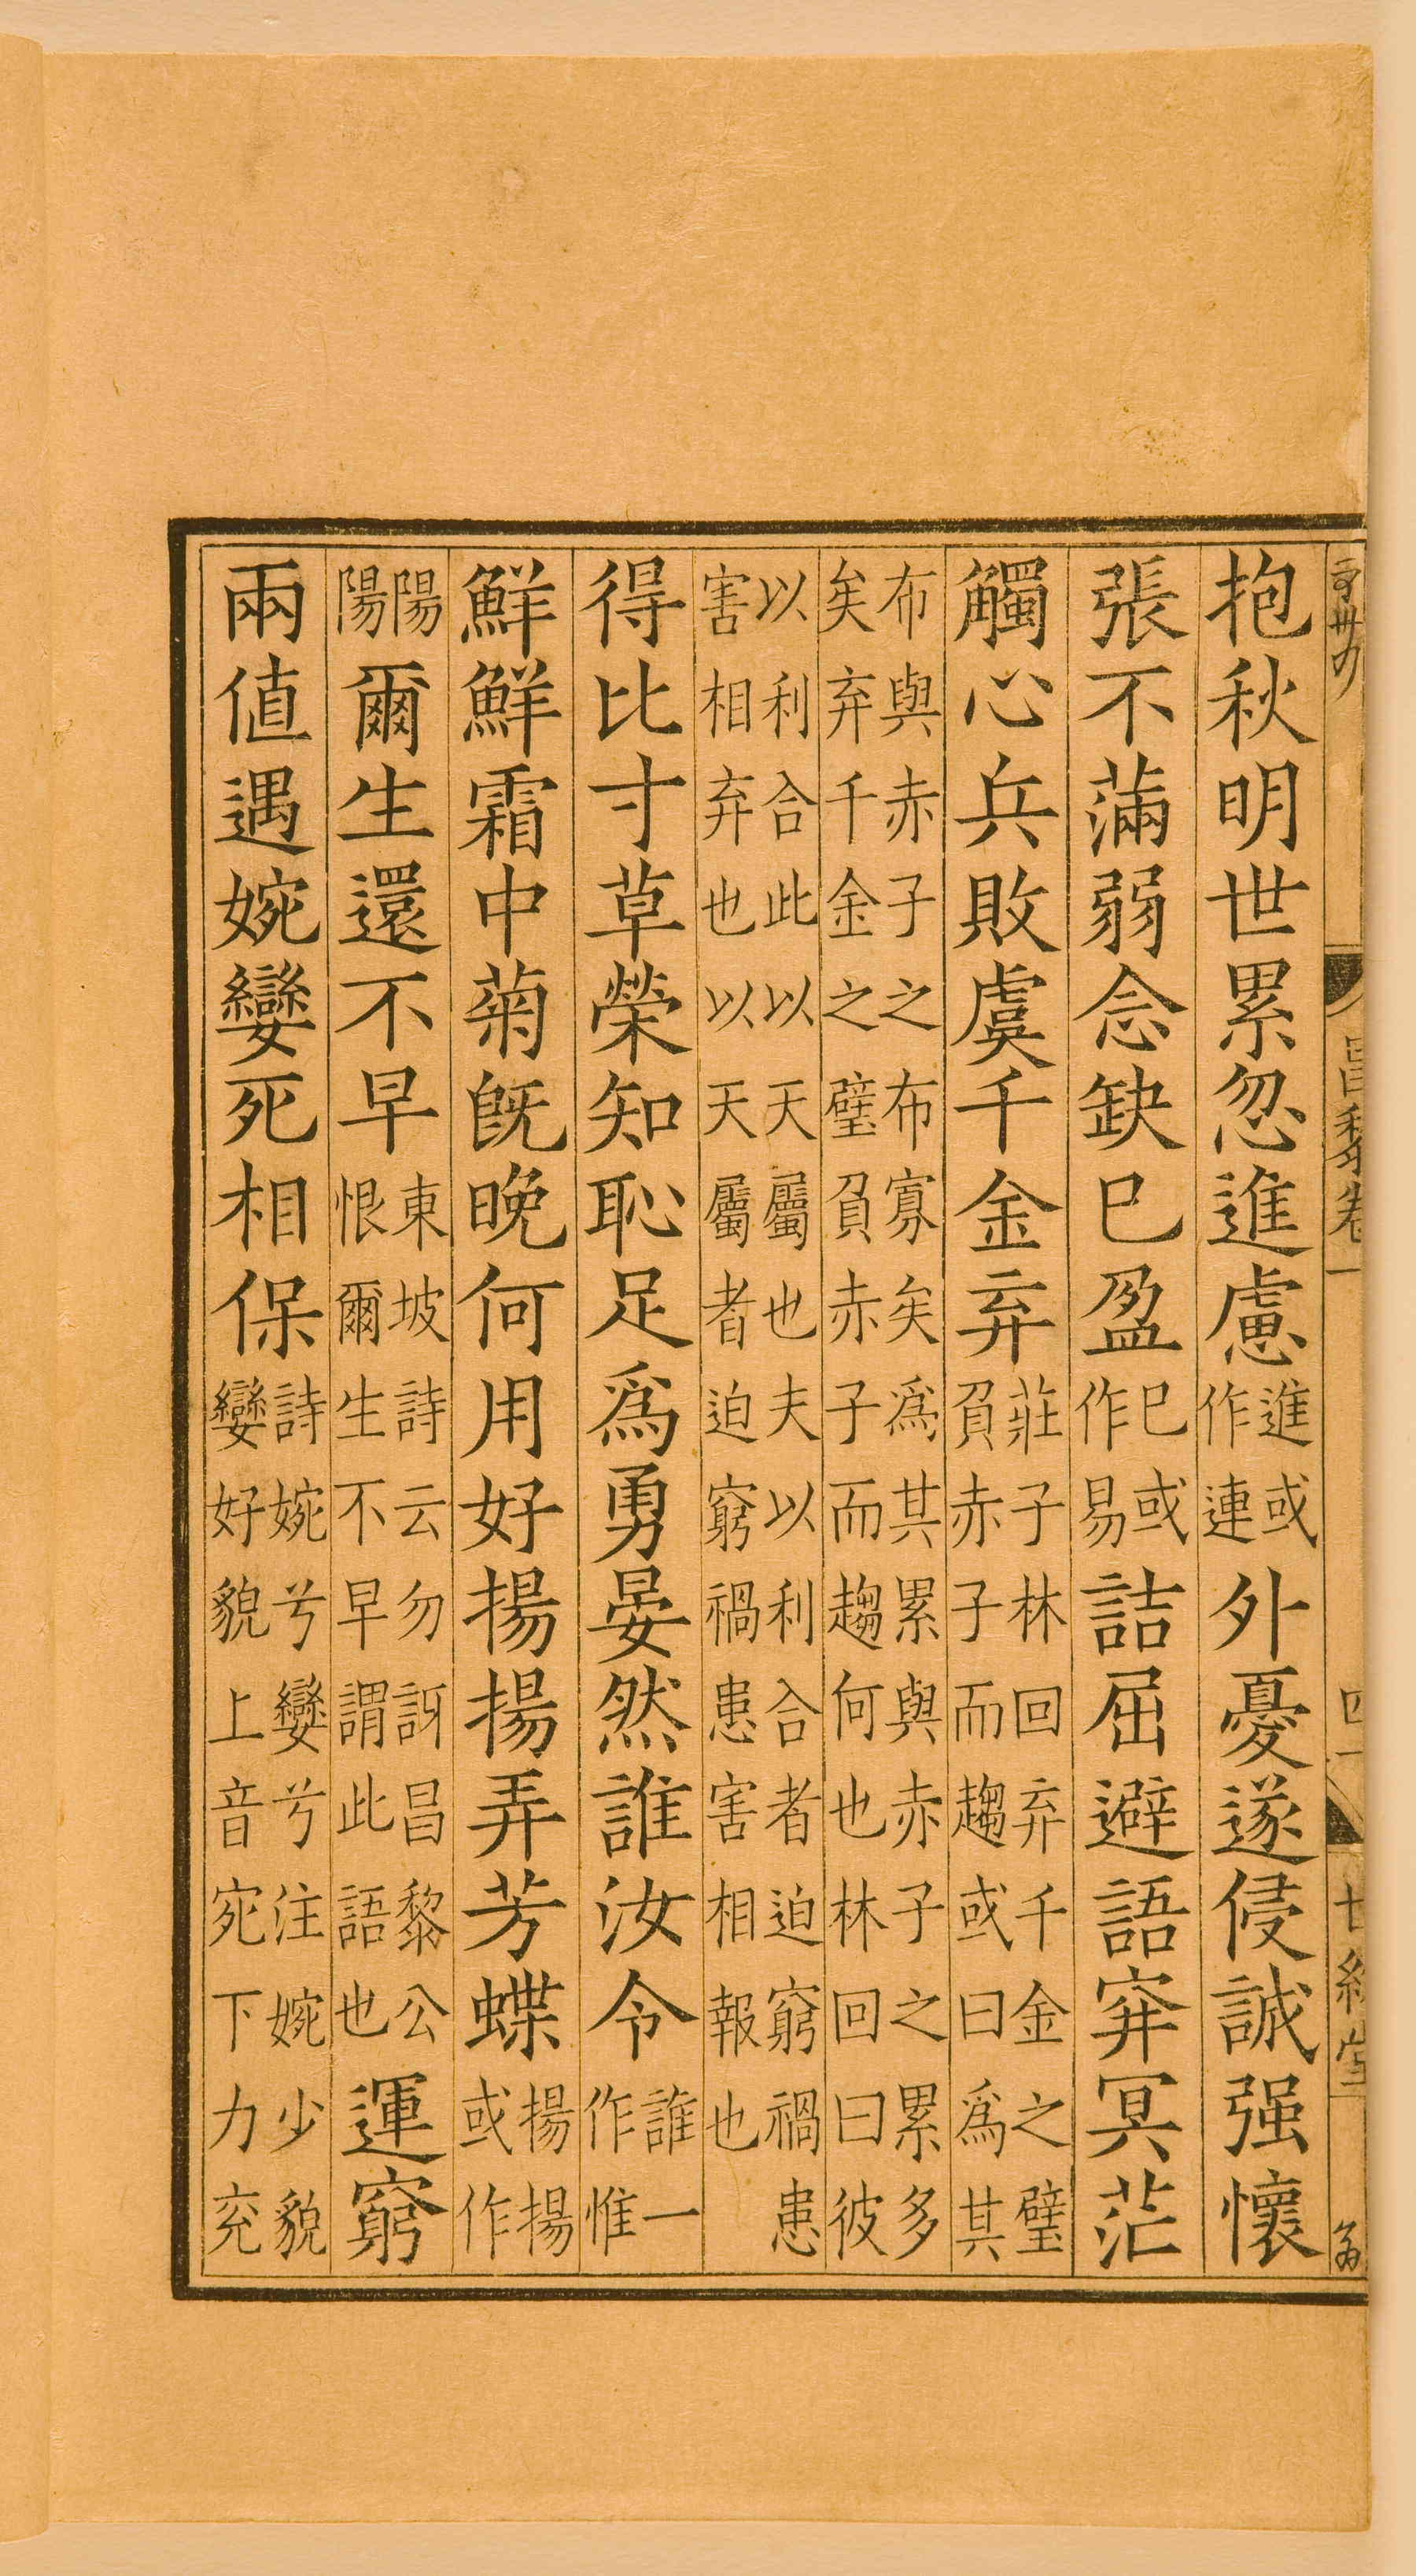 抱秋明世累忽進慮進或作連外憂遂侵誠强懷
張不滿弱念缺巳盈巳或作易詰屈避語穽冥茫
觸心兵敗虞千金弃莊子林回弃千金之璧負赤子而趨或曰爲其
布與赤子之布寡矣爲其累與赤子之累多矣弃千金之璧負赤子而趨何也林回曰彼
以利合此以天屬也夫以利合者迫窮禍患害相弃也以天屬者迫窮禍患害相報也
得比寸草榮知恥足爲勇晏然誰汝令誰一作惟
鮮鮮霜中菊旣晚何用好揚揚弄芳蝶揚揚或作
陽陽爾生還不早東坡詩云勿訝昌黎公恨爾生不早謂此語也運窮
兩値遇婉孌死相保詩婉兮孌兮注婉少貌孌好貌上音宛下力兖
昌黎卷一
世綵堂